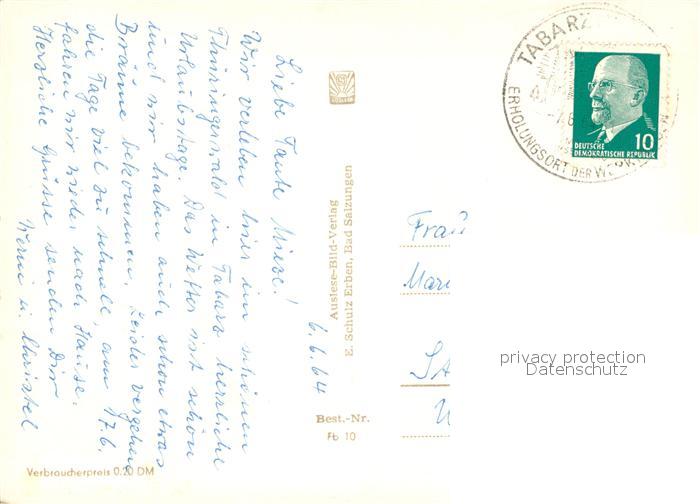 6.6.64
Liebe Tante Miese!
Wir verleben hier im schönen
Thüringerwald in Tabarz herrliche
Urlaubstage. Das Wetter ist schön
und wir haben auch schon etwas
Bräune bekommen. Leider vergehen
die Tage viel zu schnell, am 17.6.
fahren wir wieder nach Hause.
Herzliche Grüsse senden Dir
u. Christel
Verbraucherpreis 0.20 DM
Auslese-Bild-Verlag
E. Schulz Erben, Bad Salzungen
Best.-Nr.
Fb 10
TABARZ
ERHOLUNGSORT DER
10
DEUTSCHE
DEMOKRATISCHE REPUBLIK
Frau
Mari
privacy protection
Datenschutz